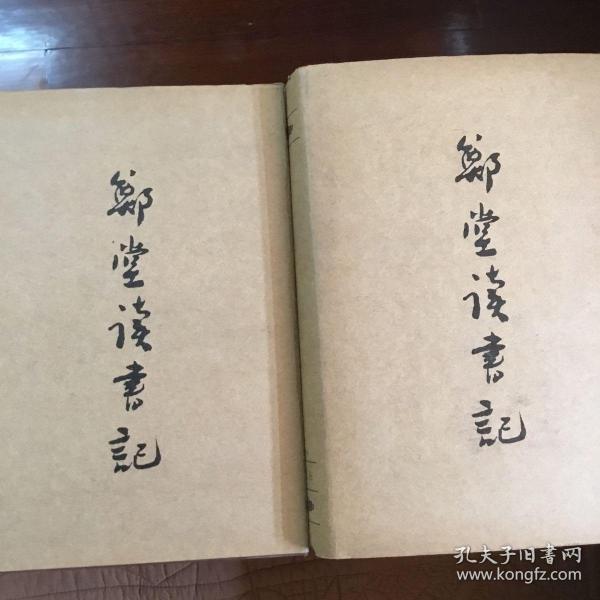 鄭堂读書記
鄭堂读書記
孔夫子旧書网
www.kongfz.com